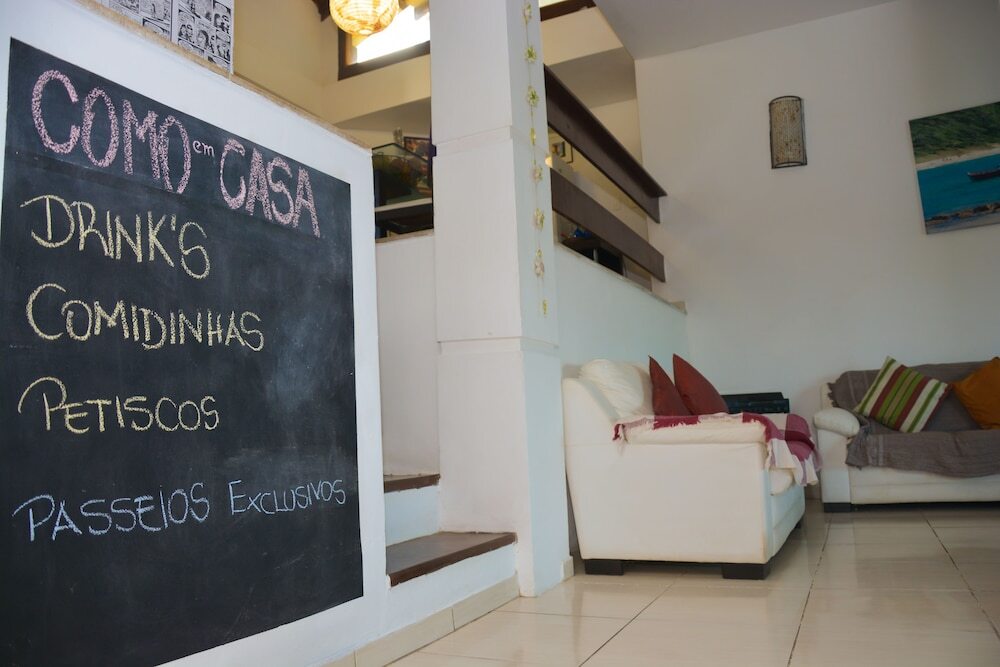 COMO em CASA
DRINK'S
COMIDINHAS
PETISCOS
PASSEIOS EXCLUSIVOS